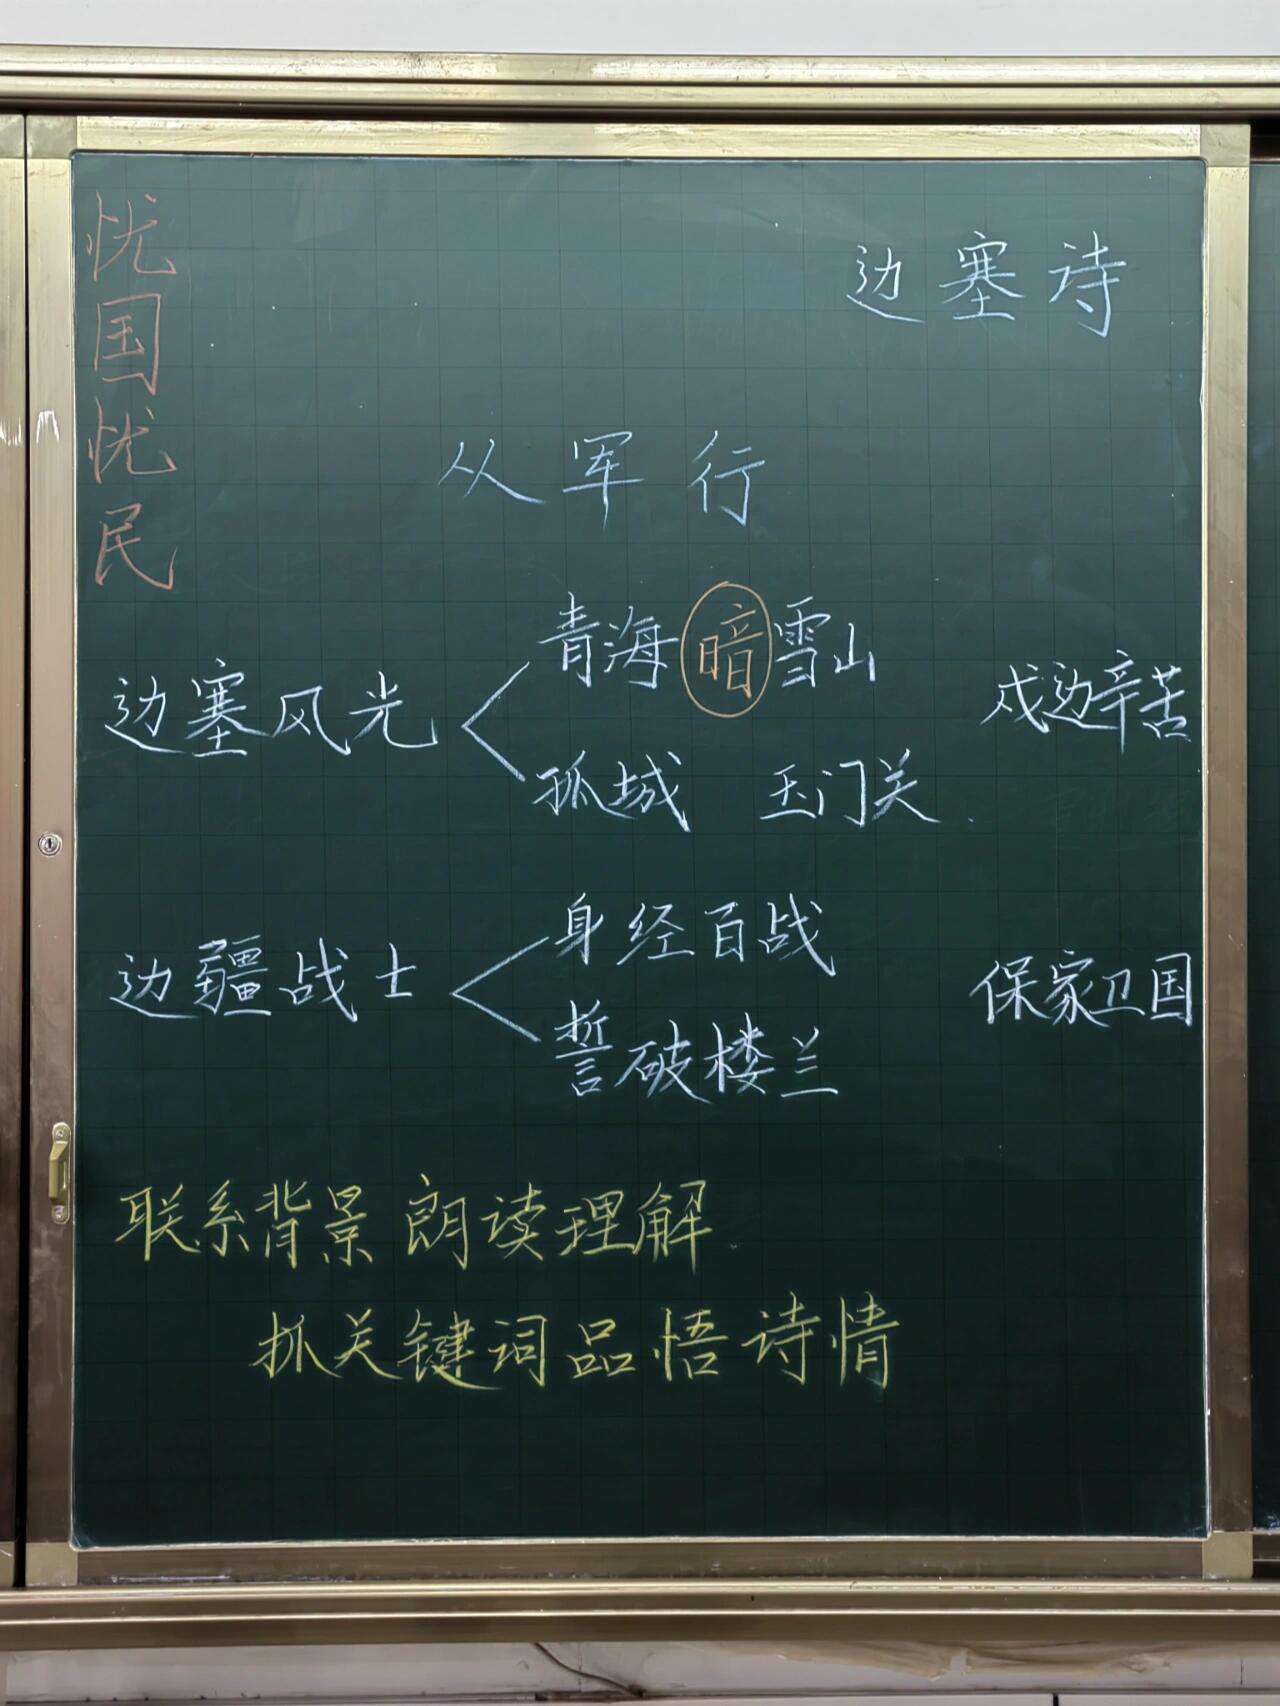 忧国忧民
边塞诗
从军行
边塞风光
青海暗雪山
孤城 玉门关
戍边辛苦
边疆战士
身经百战
誓破楼兰
保家卫国
联系背景 朗读理解
抓关键词品悟诗情